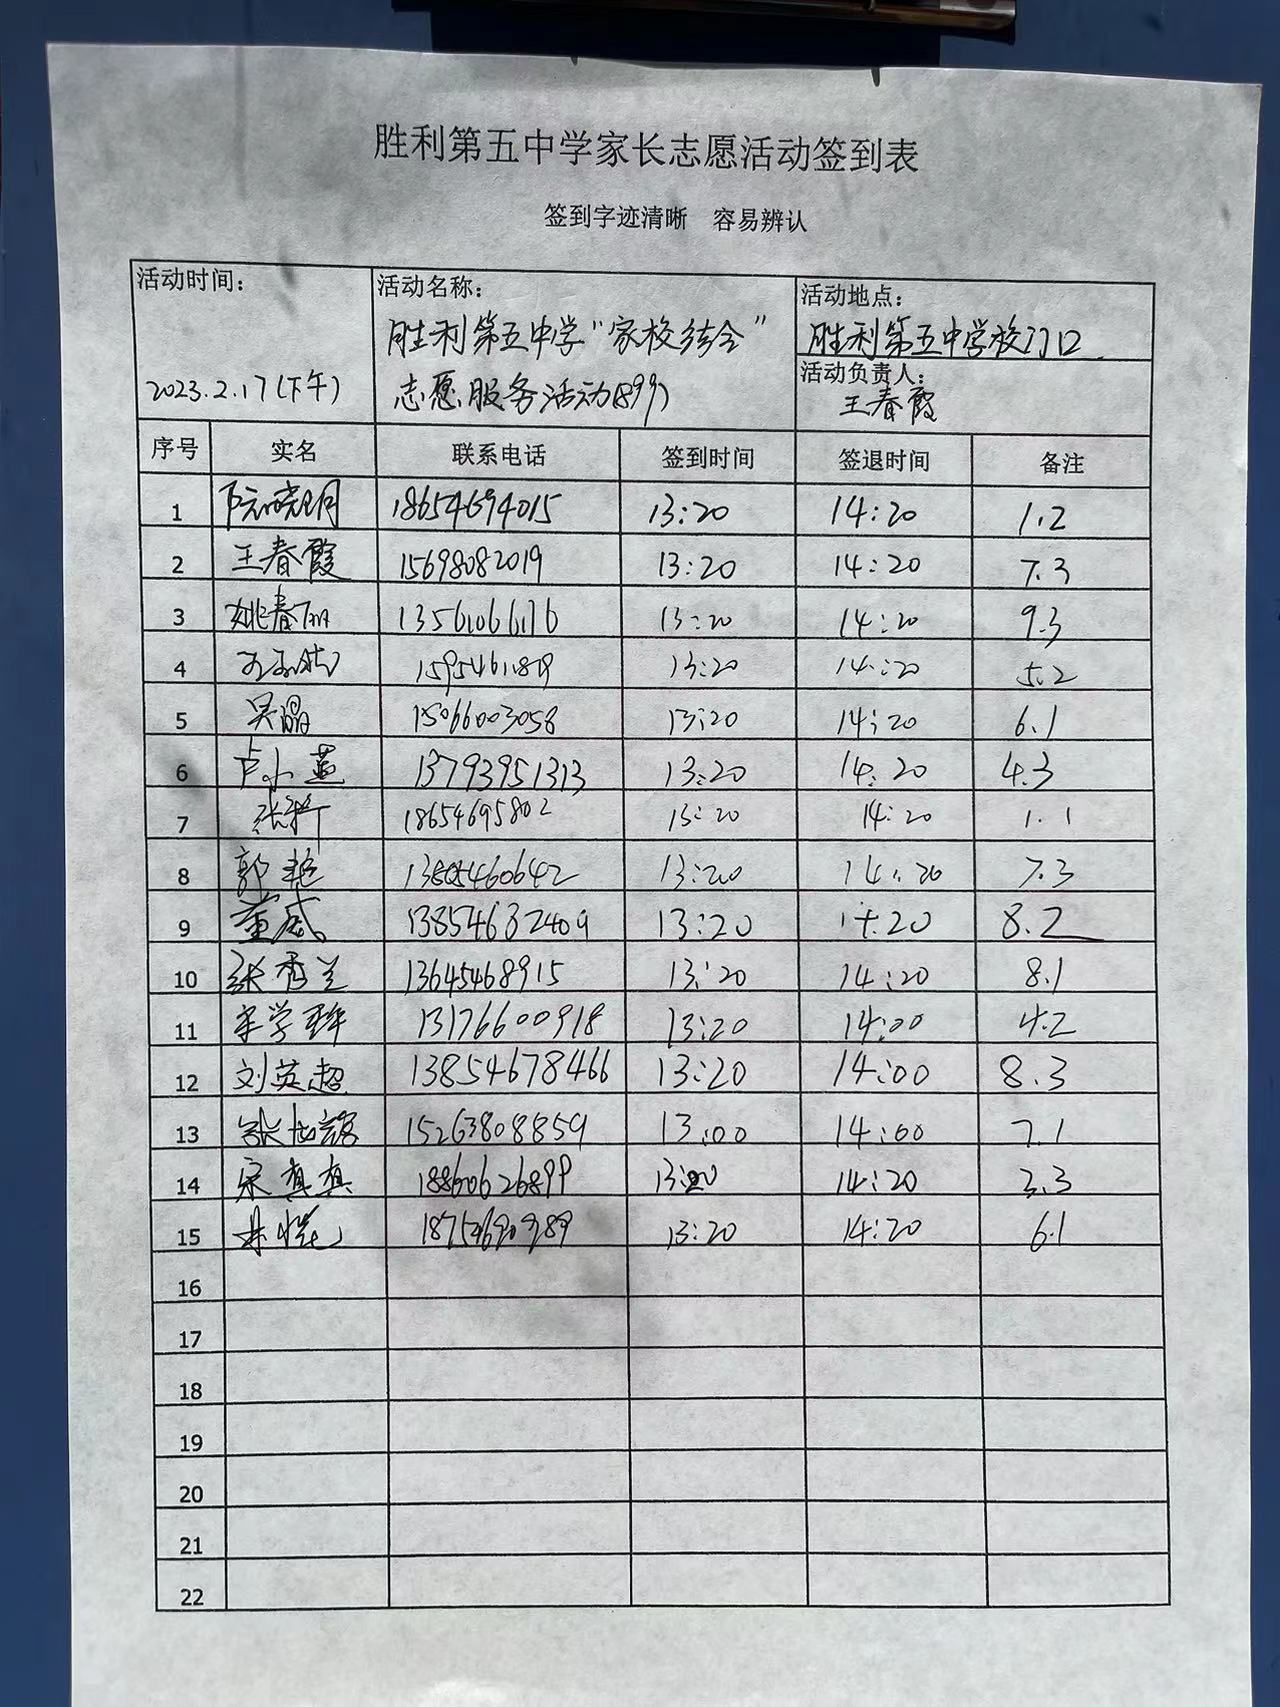 胜利第五中学家长志愿活动签到表
签到字迹清晰 容易辨认
活动时间:
2023.2.17(下午)
活动名称:
胜利第五中学"家校结合"
志愿服务活动(899)
活动地点:
胜利第五中学校门口
活动负责人:
王春霞
序号 实名 联系电话 签到时间 签退时间 备注
1 阮晓明 18654694015 13:20 14:20 1.2
2 王春霞 15698082019 13:20 14:20 7.3
3 姚春丽 13561066176 13:20 14:20 9.3
4 13:20 14:20 5.2
5 吴晶 15066003058 13:20 14:20 6.1
6 卢小蓝 13793951313 13:20 14:20 4.3
7 18654695802 13:20 14:20 1.1
8 郭艳 13805460642 13:20 14:20 7.3
9 董威 13854632409 13:20 14:20 8.2
10 张秀兰 13645468915 13:20 14:20 8.1
11 13176600918 13:20 14:00 4.2
12 刘英超 13854678466 13:20 14:00 8.3
13 15263808859 13:00 14:00 7.1
14 宋真真 18860626899 13:20 14:20 3.3
15 13:20 14:20 6.1
16
17
18
19
20
21
22